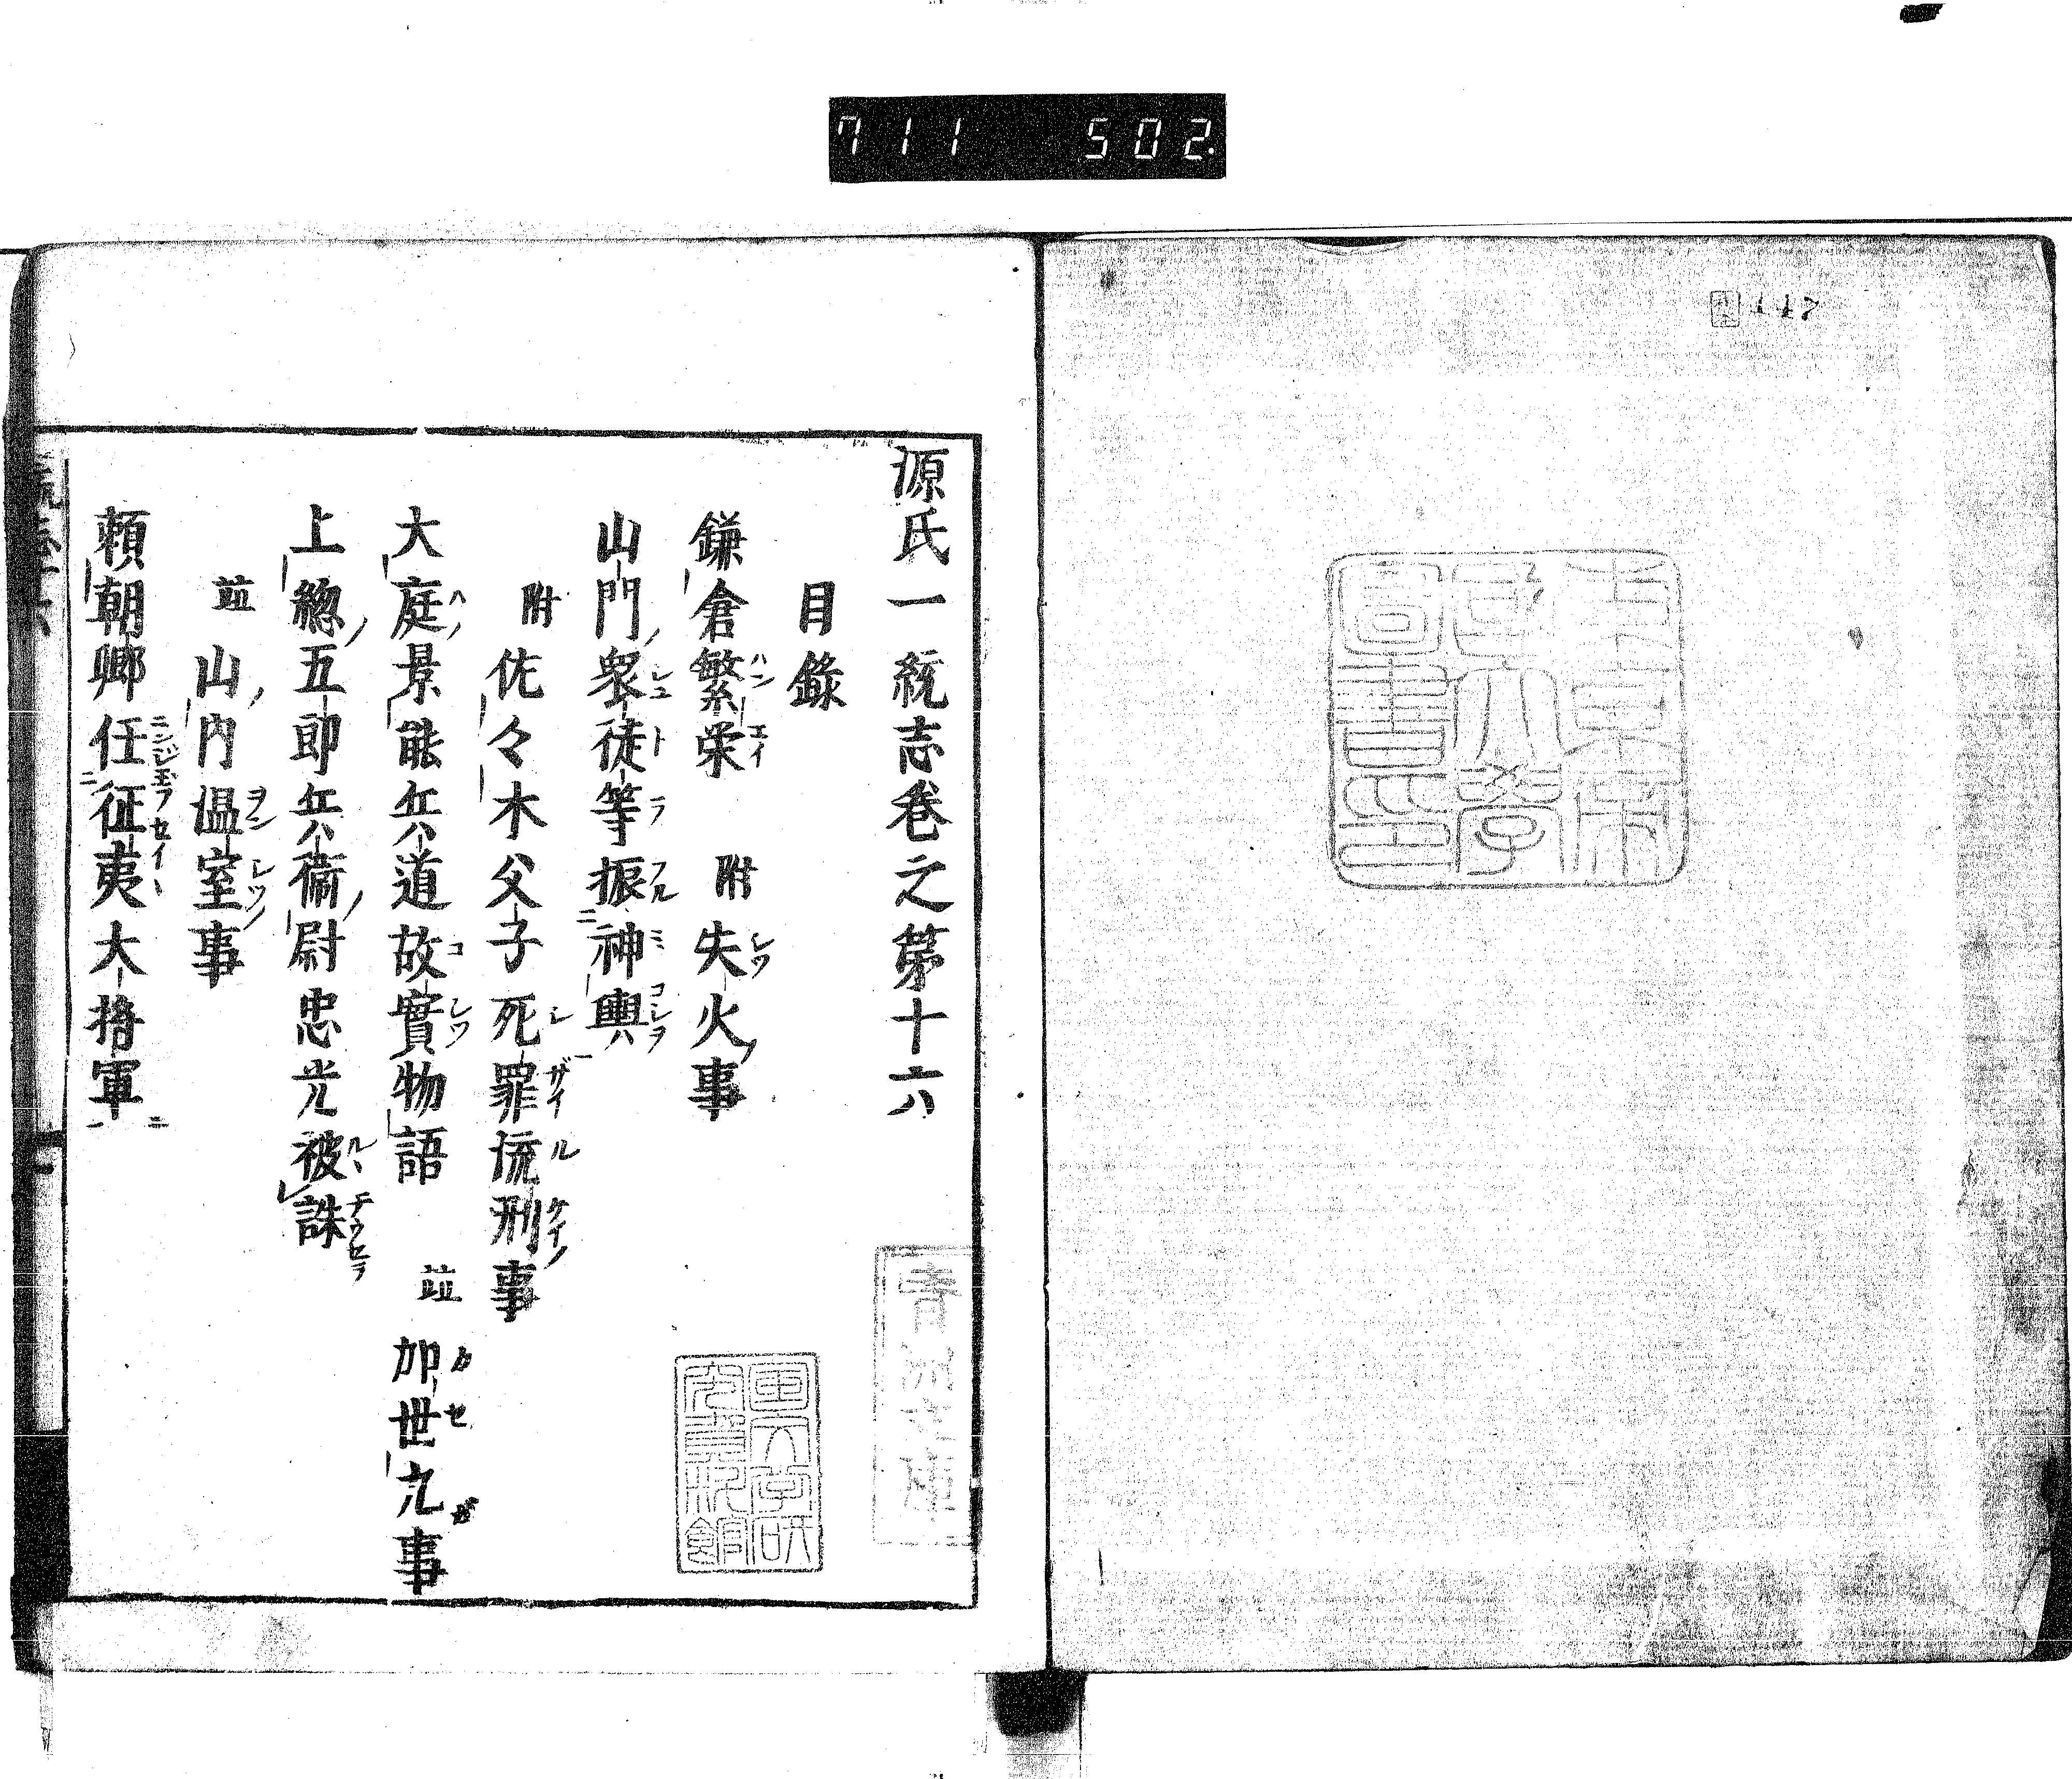 711 502.
源氏一統志巻之第十六
目録
鎌倉繁栄 附 失火事
山門衆徒等振神輿
附 佐々木父子死罪流刑事
大庭景能兵道故實物語 並 加世九事
上総五郎兵衛尉忠光被誅
並 山内温室事
頼朝卿任征夷大将軍
東京帝
国大学
図書印
青洲文庫